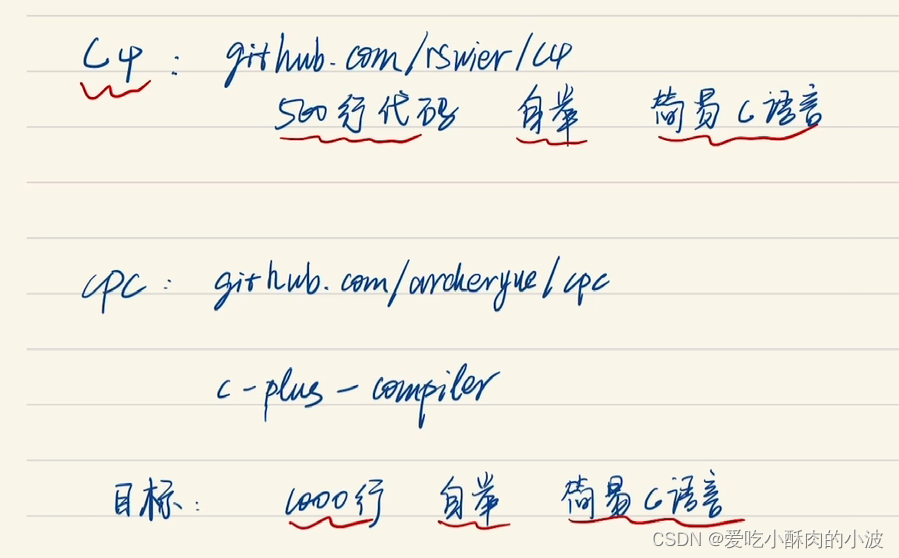 C4: github.com/rswier/c4
500行代码 自举 简易C语言
cpc: github.com/archeryue/cpc
c-plus-compiler
目标: 1000行 自举 简易C语言
CSDN @爱吃小酥肉的小波